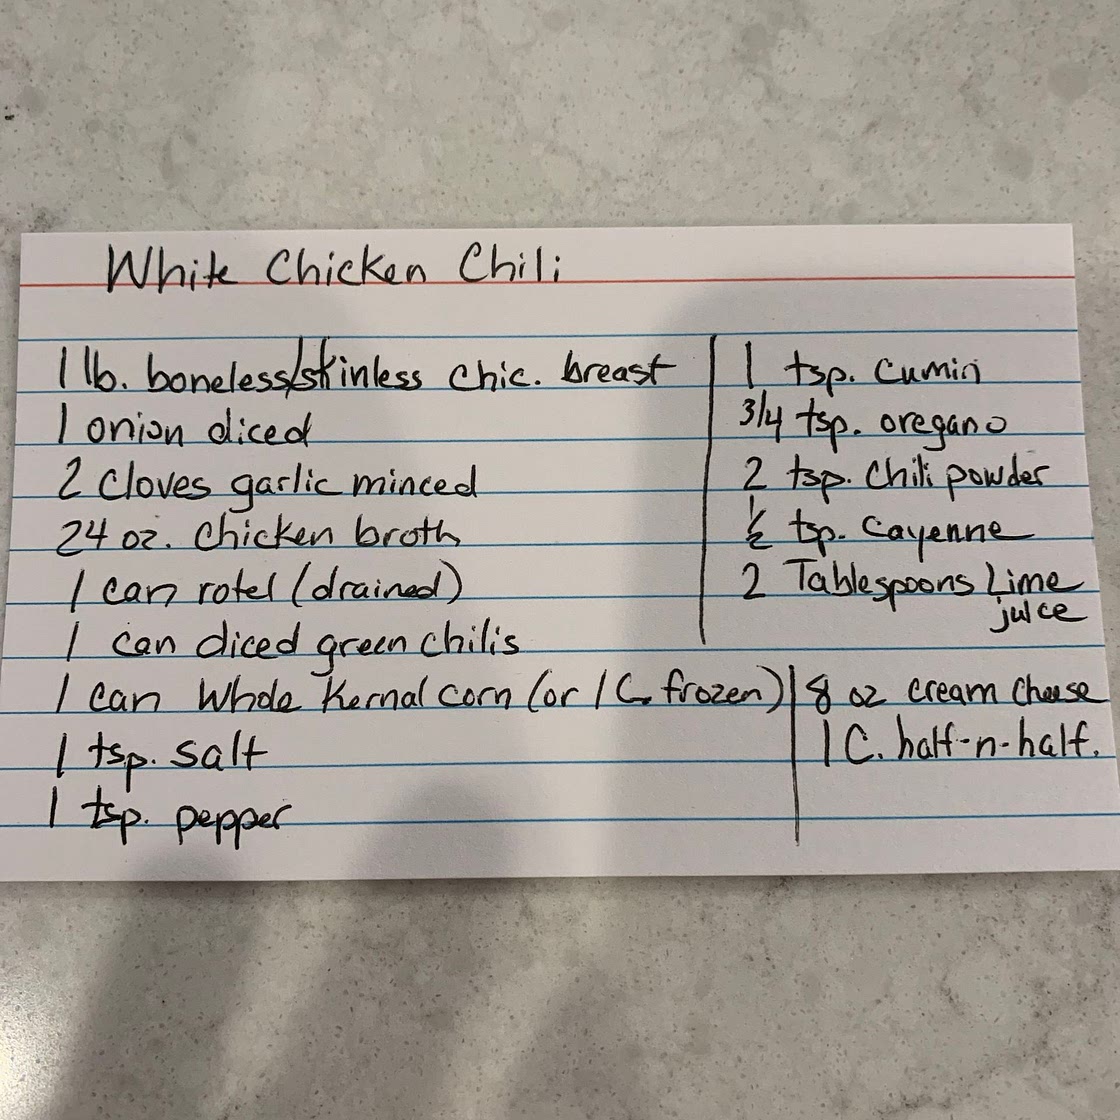 White Chicken Chili
1 lb. boneless/skinless chic. breast
1 onion diced
2 cloves garlic minced
24 oz. chicken broth
1 can rotel (drained)
1 can diced green chilis
1 can whole kernal corn (or 1 C. frozen)
1 tsp. salt
1 tsp. pepper
1 tsp. cumin
3/4 tsp. oregano
2 tsp. chili powder
1/2 tsp. cayenne
2 Tablespoons Lime
juice
8 oz cream cheese
1 C. half-n-half.